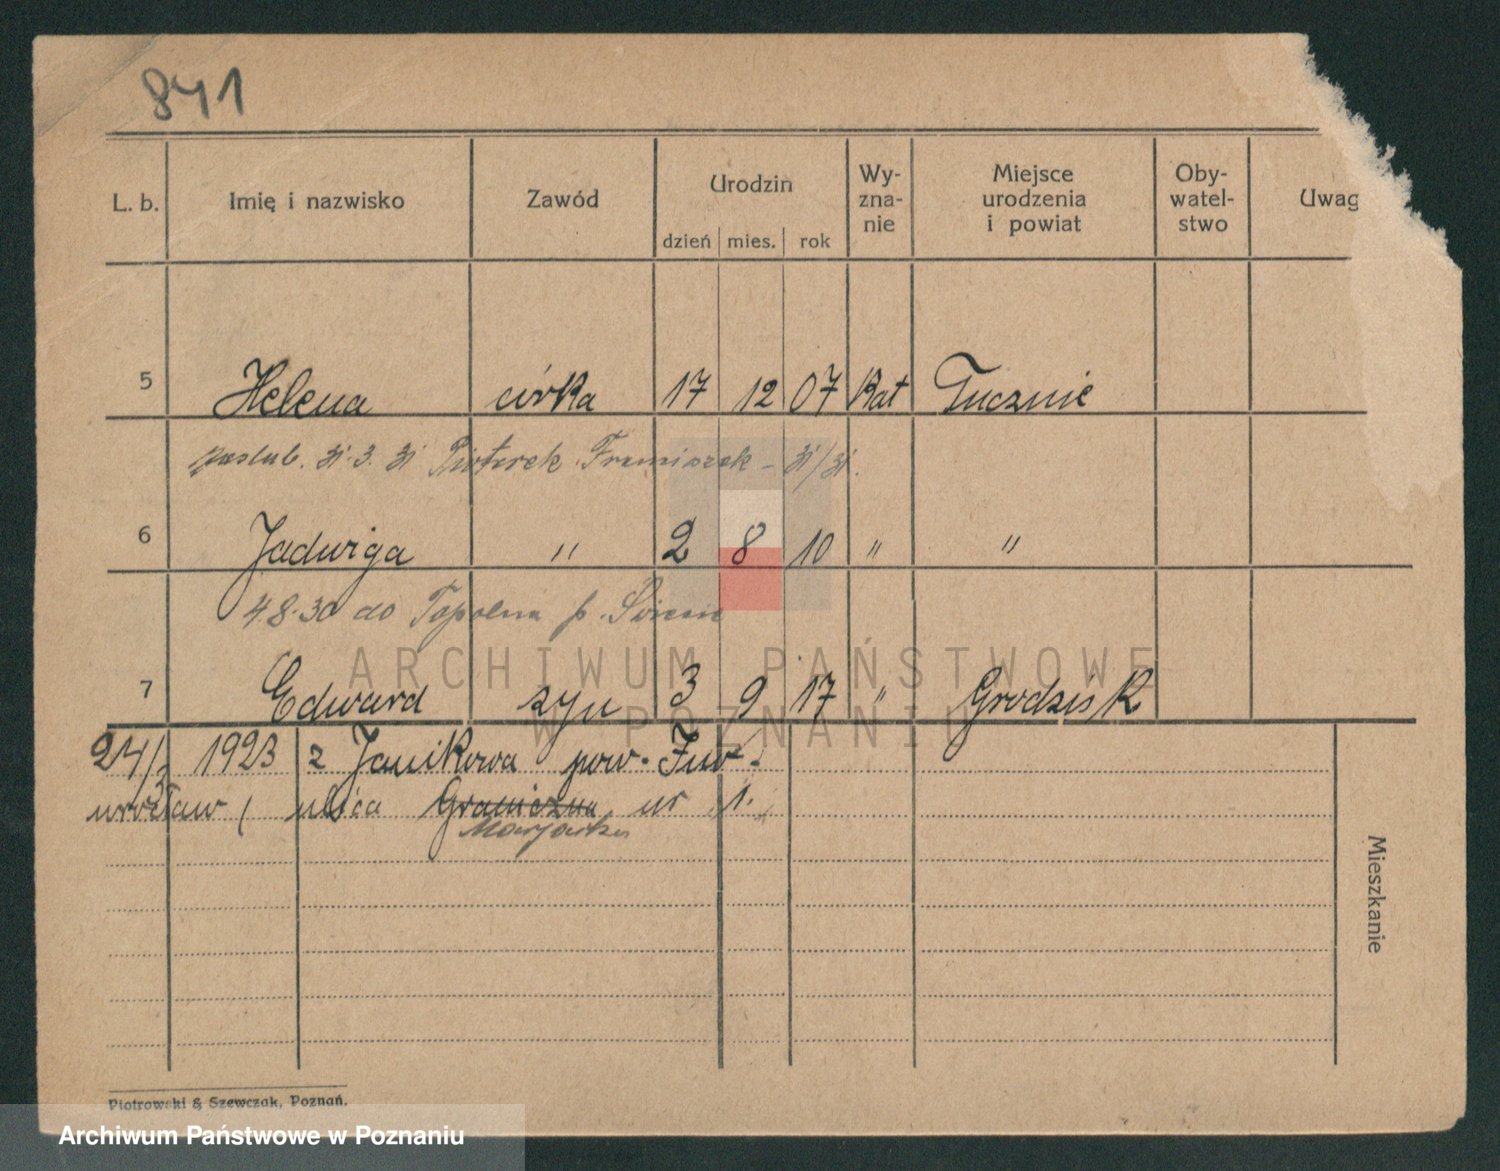 841
L. b. Imię i nazwisko Zawód Urodzin dzień mies. rok Wy-zna-nie Miejsce urodzenia i powiat Oby-watel-stwo Uwag
5 Helena córka 17 12 07 Kat Tucznie
zaślub. 31. 3. 31 Piotrek Franciszek - 31/31.
6 Jadwiga " 2 8 10 " "
4.8.30 do Topolna p. Świecie
7 Edward syn 3 9 17 " Grodzisk
24/3 1923 z Janikowa pow. Inw-
wrocław ( ulica Graniczna nr 1.
Mieszkanie
Piotrowski & Szewczak, Poznań.
ARCHIWUM PAŃSTWOWE
W POZNANIU
Archiwum Państwowe w Poznaniu